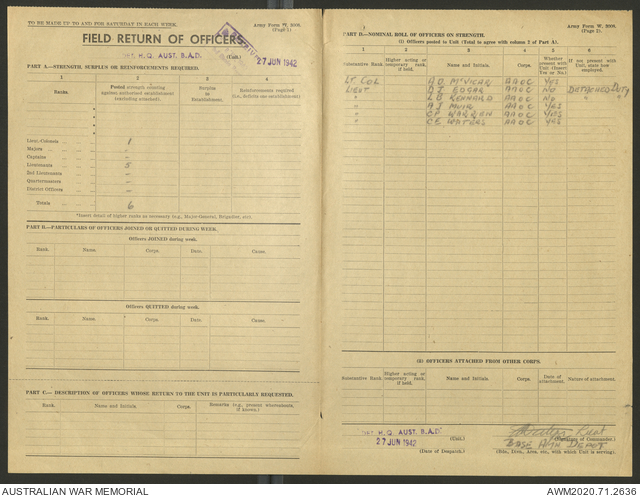 TO BE MADE UP TO AND FOR SATURDAY IN EACH WEEK.
Army Form W. 3008.
(Page 1)
FIELD RETURN OF OFFICERS
H.Q. AUST. B.A.D. (Unit.)
27 JUN 1942
PART A.—STRENGTH, SURPLUS OR REINFORCEMENTS REQUIRED.
1 2 3 4
Ranks. Posted strength counting against authorised establishment (excluding attached). Surplus to Establishment. Reinforcements required (i.e., deficits one establishment)
Lieut.-Colonels 1
Majors -
Captains -
Lieutenants 5
2nd Lieutenants -
Quartermasters -
District Officers -
Totals 6
*Insert detail of higher ranks as necessary (e.g., Major-General, Brigadier, etc).
PART B.—PARTICULARS OF OFFICERS JOINED OR QUITTED DURING WEEK.
Officers JOINED during week.
Rank. Name. Corps. Date. Cause.
Officers QUITTED during week.
Rank. Name. Corps. Date. Cause.
PART C.— DESCRIPTION OF OFFICERS WHOSE RETURN TO THE UNIT IS PARTICULARLY REQUESTED.
Rank. Name and Initials. Corps. Remarks (e.g., present whereabouts, if known.)
Army Form W. 3008.
(Page 2).
PART D.—NOMINAL ROLL OF OFFICERS ON STRENGTH.
(1) Officers posted to Unit (Total to agree with column 2 of Part A).
1 2 3 4 5 6
Substantive Rank. Higher acting or temporary rank, if held. Name and Initials. Corps. Whether present with Unit (Insert Yes or No.) If not present with Unit, state how employed.
LT COL A D McVICAR AAOC YES
LIEUT A J EDGAR AAOC NO DETACHED DUTY
" L B KENNARD AAOC NO " "
" A J MUIR AAOC YES
" C P WARREN AAOC YES
" C E WATERS AAOC YES
(2) OFFICERS ATTACHED FROM OTHER CORPS.
Substantive Rank. Higher acting or temporary rank, if held. Name and Initials. Corps. Date of attachment. Nature of attachment.
H.Q. AUST. B.A.D. (Unit.)
27 JUN 1942
(Date of Despatch.)
(Signature of Commander.)
BASE AMN DEPOT
(Bde., Divn., Area, etc., with which Unit is serving).
AUSTRALIAN WAR MEMORIAL
AWM2020.71.2636